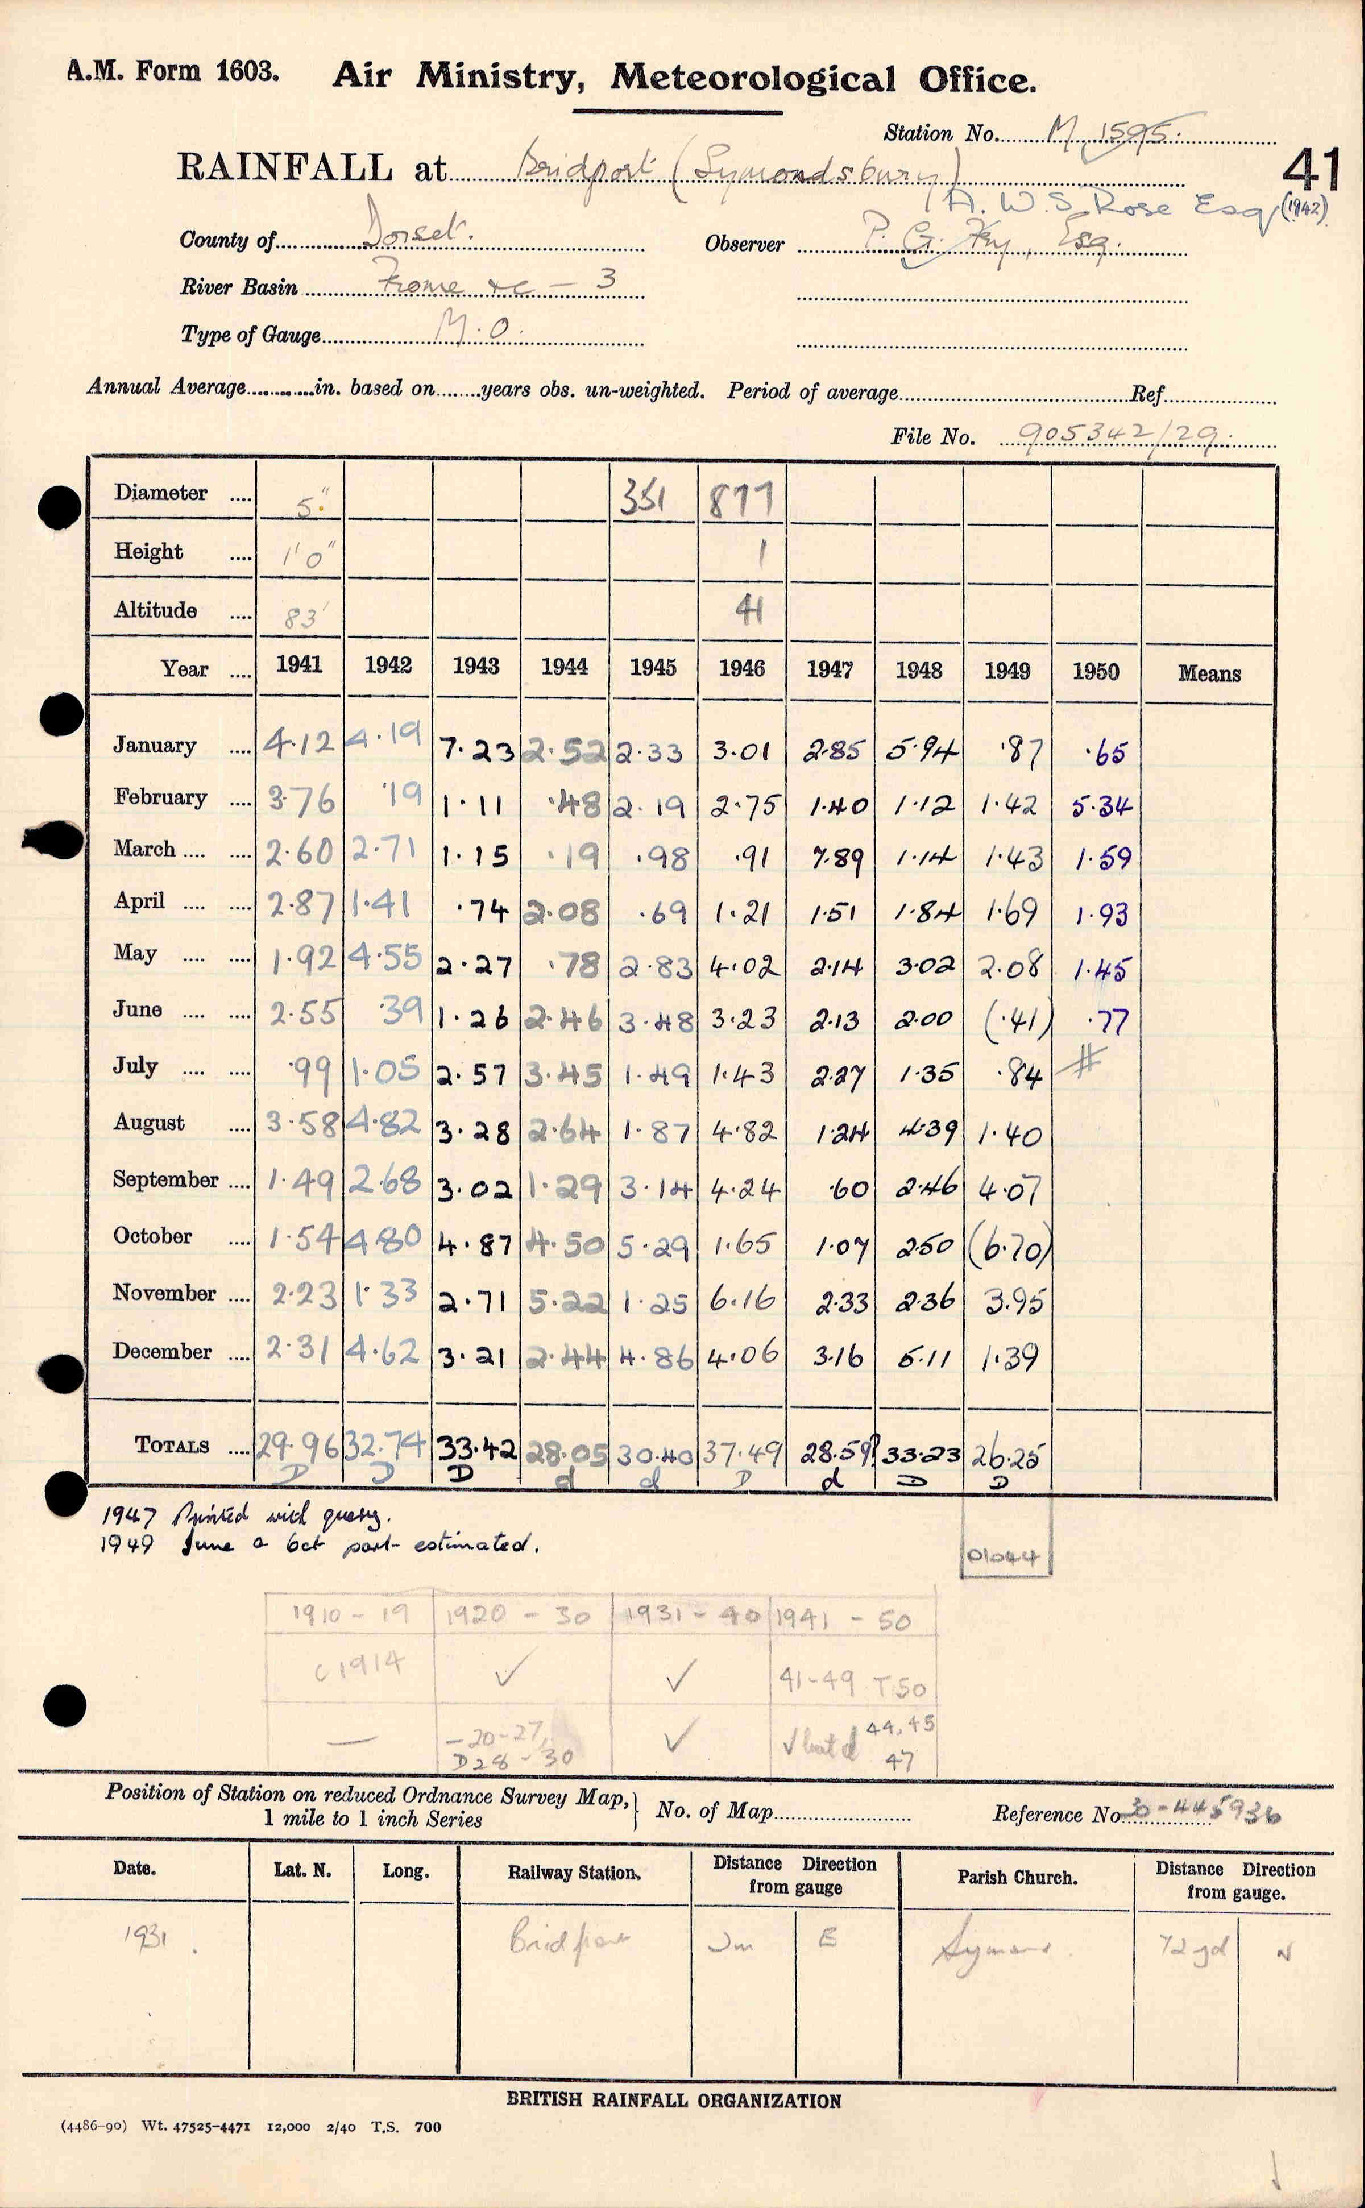 A.M. Form 1603. Air Ministry, Meteorological Office.
Station No. M 1595.
41
RAINFALL at Bridport (Symondsbury)
A. W. S. Rose Esq (1942)
County of Dorset. Observer P. G. Fry, Esq.
River Basin Frome &c - 3
Type of Gauge M.O.
Annual Average in. based on years obs. un-weighted. Period of average Ref.
File No. 905342/29.
Diameter 5" 351 877
Height 1'0" 1
Altitude 83' 41
Year 1941 1942 1943 1944 1945 1946 1947 1948 1949 1950 Means
January 4.12 4.19 7.23 2.52 2.33 3.01 2.85 5.94 .87 .65
February 3.76 .19 1.11 .48 2.19 2.75 1.40 1.12 1.42 5.34
March 2.60 2.71 1.15 .19 .98 .91 7.89 1.14 1.43 1.59
April 2.87 1.41 .74 2.08 .69 1.21 1.51 1.84 1.69 1.93
May 1.92 4.55 2.27 .78 2.83 4.02 2.14 3.02 2.08 1.45
June 2.55 .39 1.26 2.46 3.48 3.23 2.13 2.00 (.41) .77
July .99 1.05 2.57 3.45 1.49 1.43 2.27 1.35 .84 #
August 3.58 4.82 3.28 2.64 1.87 4.82 1.24 4.39 1.40
September 1.49 2.68 3.02 1.29 3.14 4.24 .60 2.46 4.07
October 1.54 4.80 4.87 4.50 5.29 1.65 1.07 2.50 (6.70)
November 2.23 1.33 2.71 5.22 1.25 6.16 2.33 2.36 3.95
December 2.31 4.62 3.21 2.44 4.86 4.06 3.16 5.11 1.39
TOTALS 29.96 32.74 33.42 28.05 30.40 37.49 28.59? 33.23 26.25
D D D d d D d D D
1947 Printed with query.
1949 June & Oct part estimated.
01044
1910 - 19 1920 - 30 1931 - 40 1941 - 50
c 1914 ✓ ✓ 41-49 T50
— -20-27, D28-30 ✓ ✓ but d 44,45 47
Position of Station on reduced Ordnance Survey Map, 1 mile to 1 inch Series } No. of Map Reference No. 30-445936
Date. Lat. N. Long. Railway Station. Distance Direction from gauge Parish Church. Distance Direction from gauge.
1931. Bridport E Symons. 72 yd N
BRITISH RAINFALL ORGANIZATION
(4486-90) Wt. 47525-4471 12,000 2/40 T.S. 700